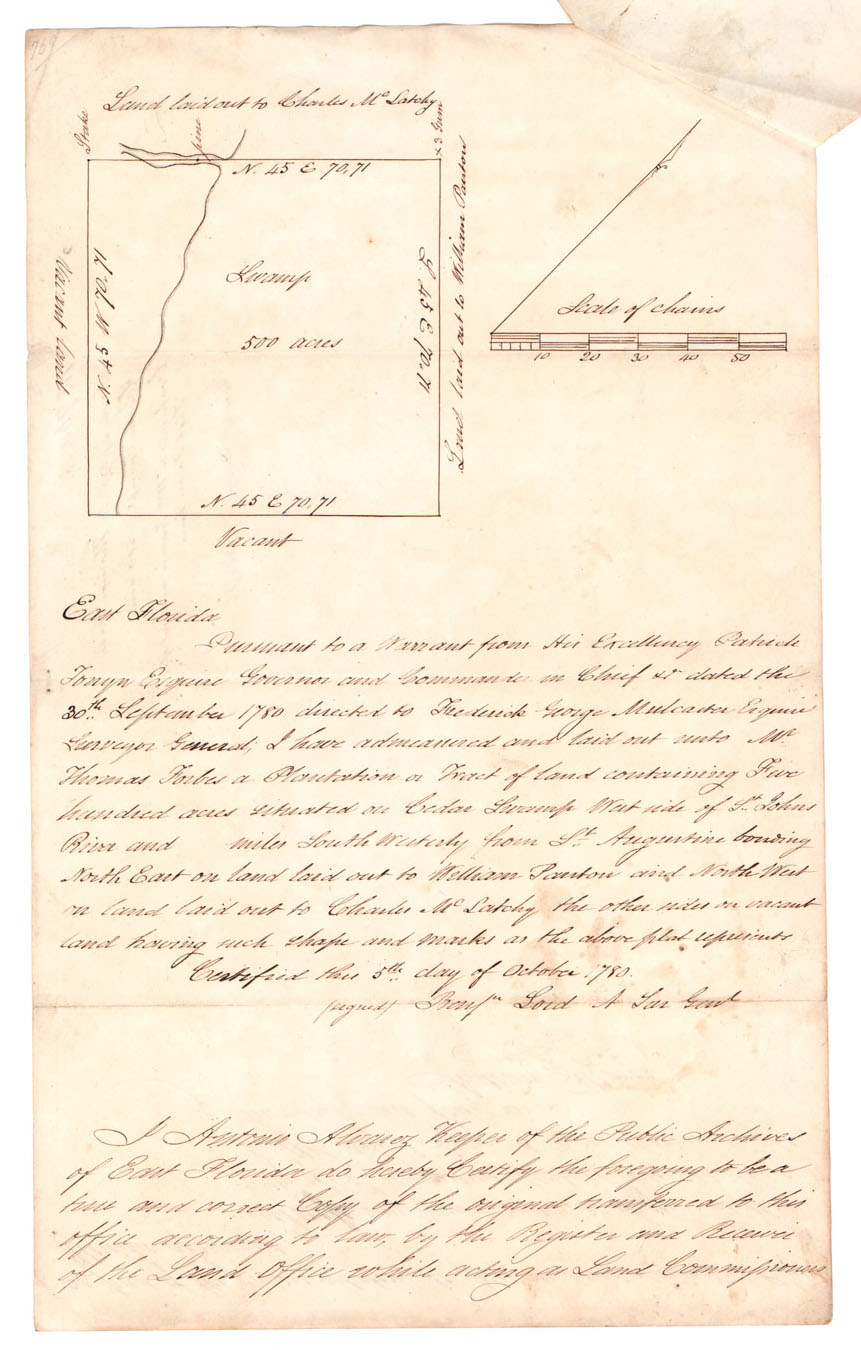 Land laid out to Charles Mc Latchy
Stake
pine
x 3 Gum
N. 45 E 70,71
Vacant Land
N 45 W 70,71
Swamp
500 acres
S. 45 E 70.71
Land laid out to William Panton
N. 45 E 70,71
Vacant
Scale of chains
10 20 30 40 50
East Florida
Pursuant to a Warrant from His Excellency Patrick
Tonyn Esquire Governor and Commander in Chief &c dated the
30th September 1780 directed to Frederick George Mulcaster Esquire
Surveyor General; I have admeasured and laid out unto Mr.
Thomas Forbes a Plantation or Tract of land containing Five
hundred acres situated on Cedar Swamp West side of St. Johns
River and miles South Westerly from St. Augustine bounding
North East on land laid out to William Panton and North West
on land laid out to Charles Mc Latchy the other sides on vacant
land having such shape and marks as the above plat represents
Certified this 5th day of October 1780.
(signed) Benjn Lord A Sur Genl
I Antonio Alvarez Keeper of the Public Archives
of East Florida do hereby Certify the foregoing to be a
true and correct Copy of the original transferred to this
office according to law, by the Register and Receiver
of the Land Office while acting as Land Commissioners